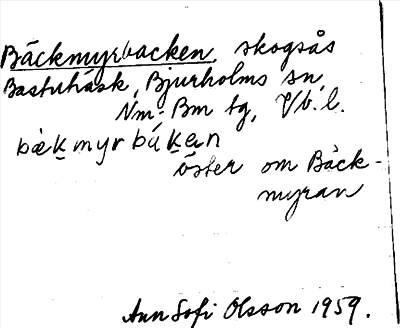 Bäckmyrbacken, skogsås
Bastuträsk, Bjurholms sn,
Nm-Bm tg, Vb. l.
bäk̲myr bák̲an
öster om Bäck-
myran
Ann Sofi Olsson 1959.